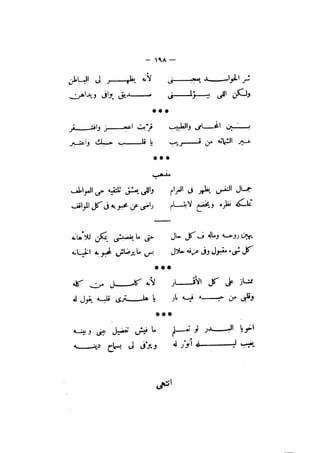 — ١٩٨ —
شر الحواسد يعجبنى لأنه يظهر لى الباطن
ولكن اللى يؤلمنى صديق يوافق ويداهن
***
بين المحامى والطبيب فرق
غير الشماته من قريب يا قلب حسبك واعتبر
***
مذهب
جمال النفس يظهر فى الغرام واللى يعشق تلتقيه حى العواطف
تملكه نظره ويخضع لابتسام راضى عن محبوبه فى كل المواقف
يهين روحه وماله فى كل حال حتى ما يفضلشى يمكن للاهانه
كل شىء مقبول وفى عرفه حلال بس ما يرضاش لمحبوبه الخيانه
***
ممتاز على كل الأقمار لأنه كامل من كله
وقلبى من حبه فيه نار يا هلترى قلبه يقول له
***
اخويا البدر لو تم ما فيش تفضيل بينى وبينه
يغيب ليله أنور له ويوفى لى بسماح دينه
انتهى